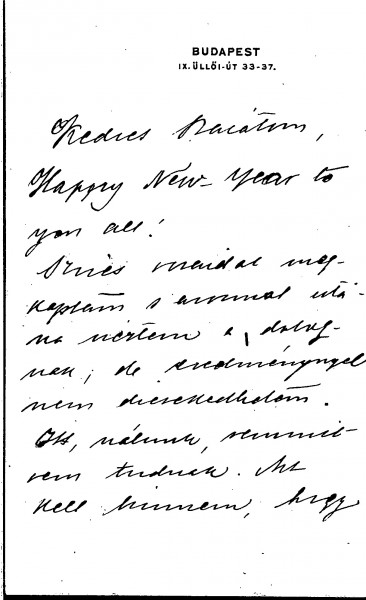 BUDAPEST
IX. ÜLLŐI-ÚT 33-37.
Kedves Barátom,
Happy New-Year to
you all!
Szíves soraidat meg-
kaptam s azonnal utá-
na néztem a dolog-
nak, de eredménnyel
nem dicsekedhetem.
Itt, nálunk, semmit
sem tudnak. Azt
kell hinnem, hogy